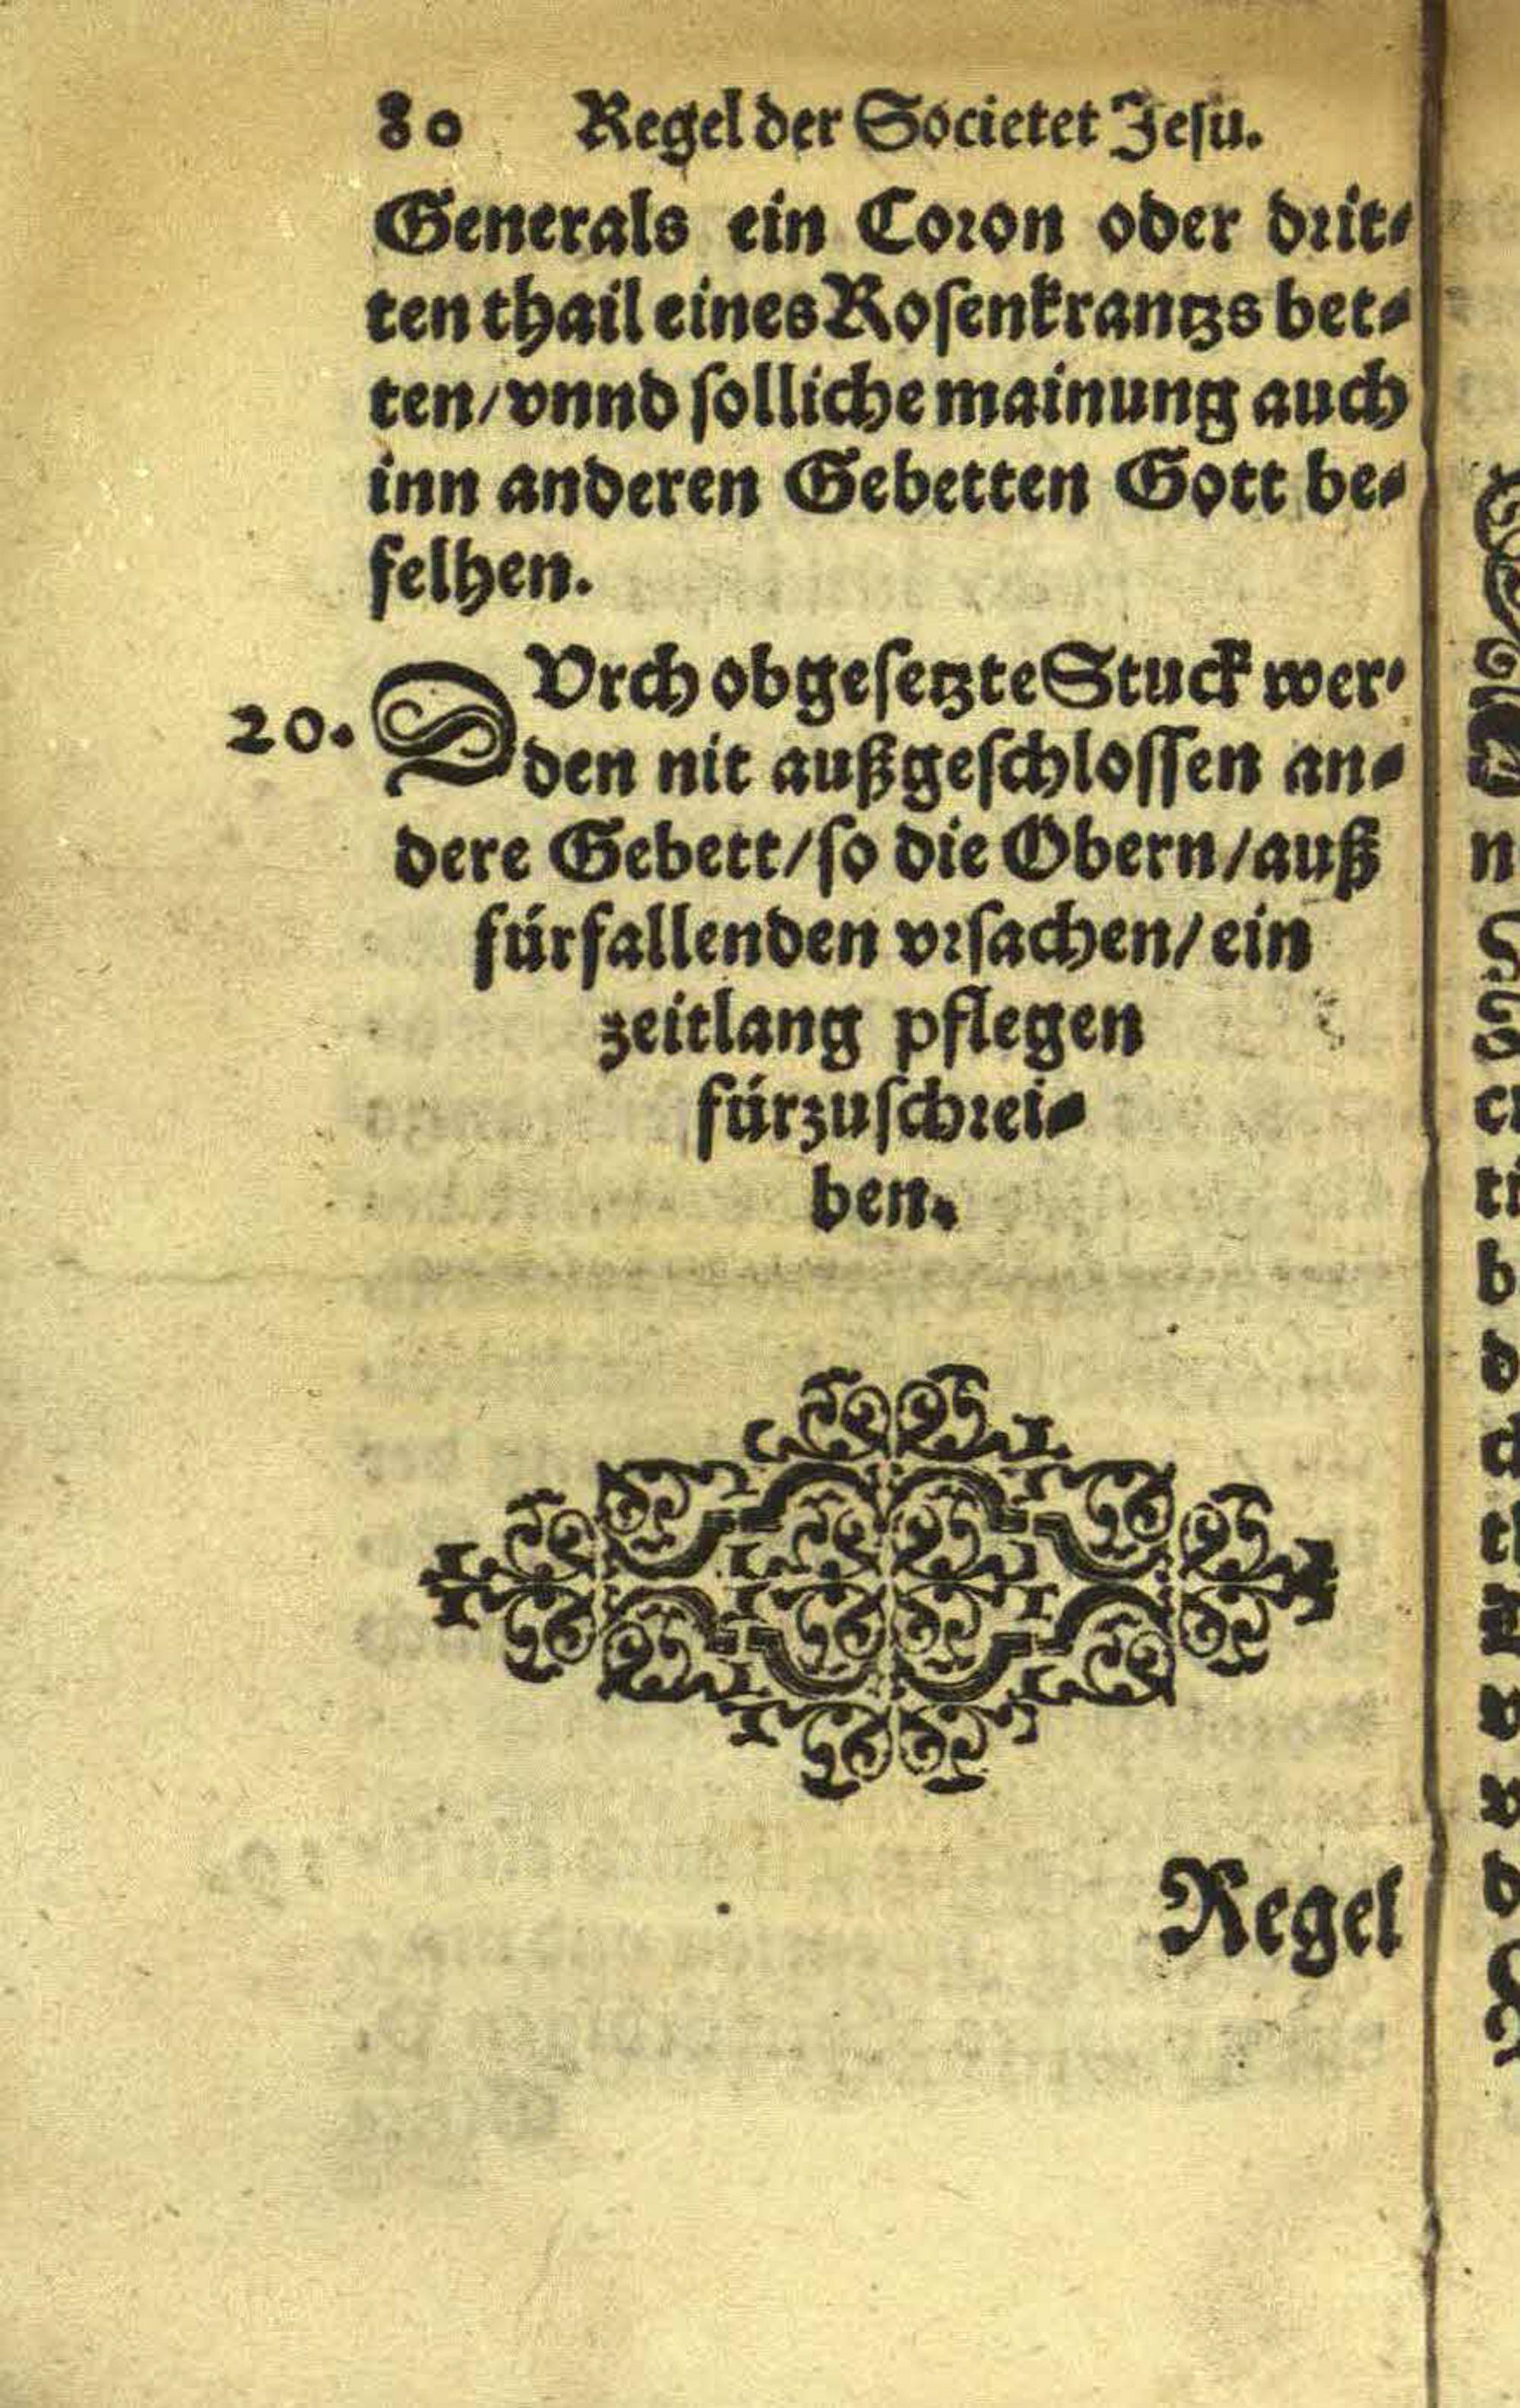 80 Regel der Societet Jesu.
Generals ein Coron oder drit⸗
ten thail eines Rosenkrantzs bet⸗
ten/vnnd solliche mainung auch
inn anderen Gebetten Gott be⸗
felhen.
20. DVrch obgesetzte Stuck wer⸗
den nit außgeschlossen an⸗
dere Gebett/so die Obern/auß
fürfallenden vrsachen/ein
zeitlang pflegen
fürzuschrei⸗
ben.
Regel